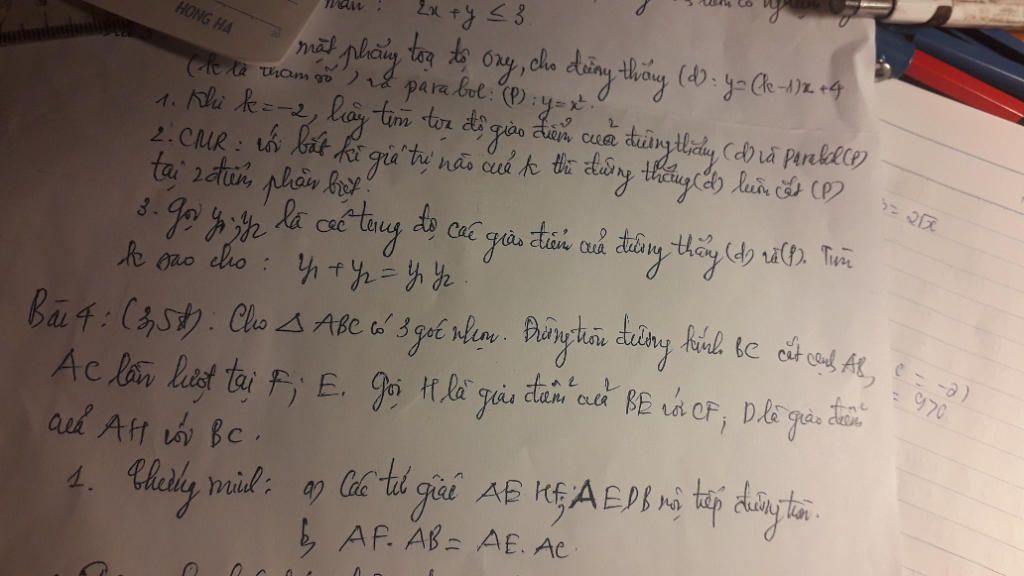 HỒNG HÀ
mãn : 2x + y ≤ 3.
mặt phẳng toạ độ oxy, cho đường thẳng (d) : y = (k-1)x + 4
(k là tham số) và parabol : (P) : y = x².
1. Khi k = -2, hãy tìm toạ độ giao điểm của đường thẳng (d) và parabol (P)
2. CMR : với bất kì giá trị nào của k thì đường thẳng (d) luôn cắt (P)
tại 2 điểm phân biệt.
3. Gọi y₁ ; y₂ là các tung độ các giao điểm của đường thẳng (d) và (P). Tìm
k sao cho : y₁ + y₂ = y₁ y₂.
Bài 4 : (3,5đ) : Cho △ ABC có 3 góc nhọn. Đường tròn đường kính BC cắt cạnh AB,
AC lần lượt tại F ; E. Gọi H là giao điểm của BE với CF ; D là giao điểm
của AH với BC.
1. Chứng minh : a) Các tứ giác AEHF ; AEDB nội tiếp đường tròn.
b, AF. AB = AE. AC.
= 2√x
= -2)
= 970